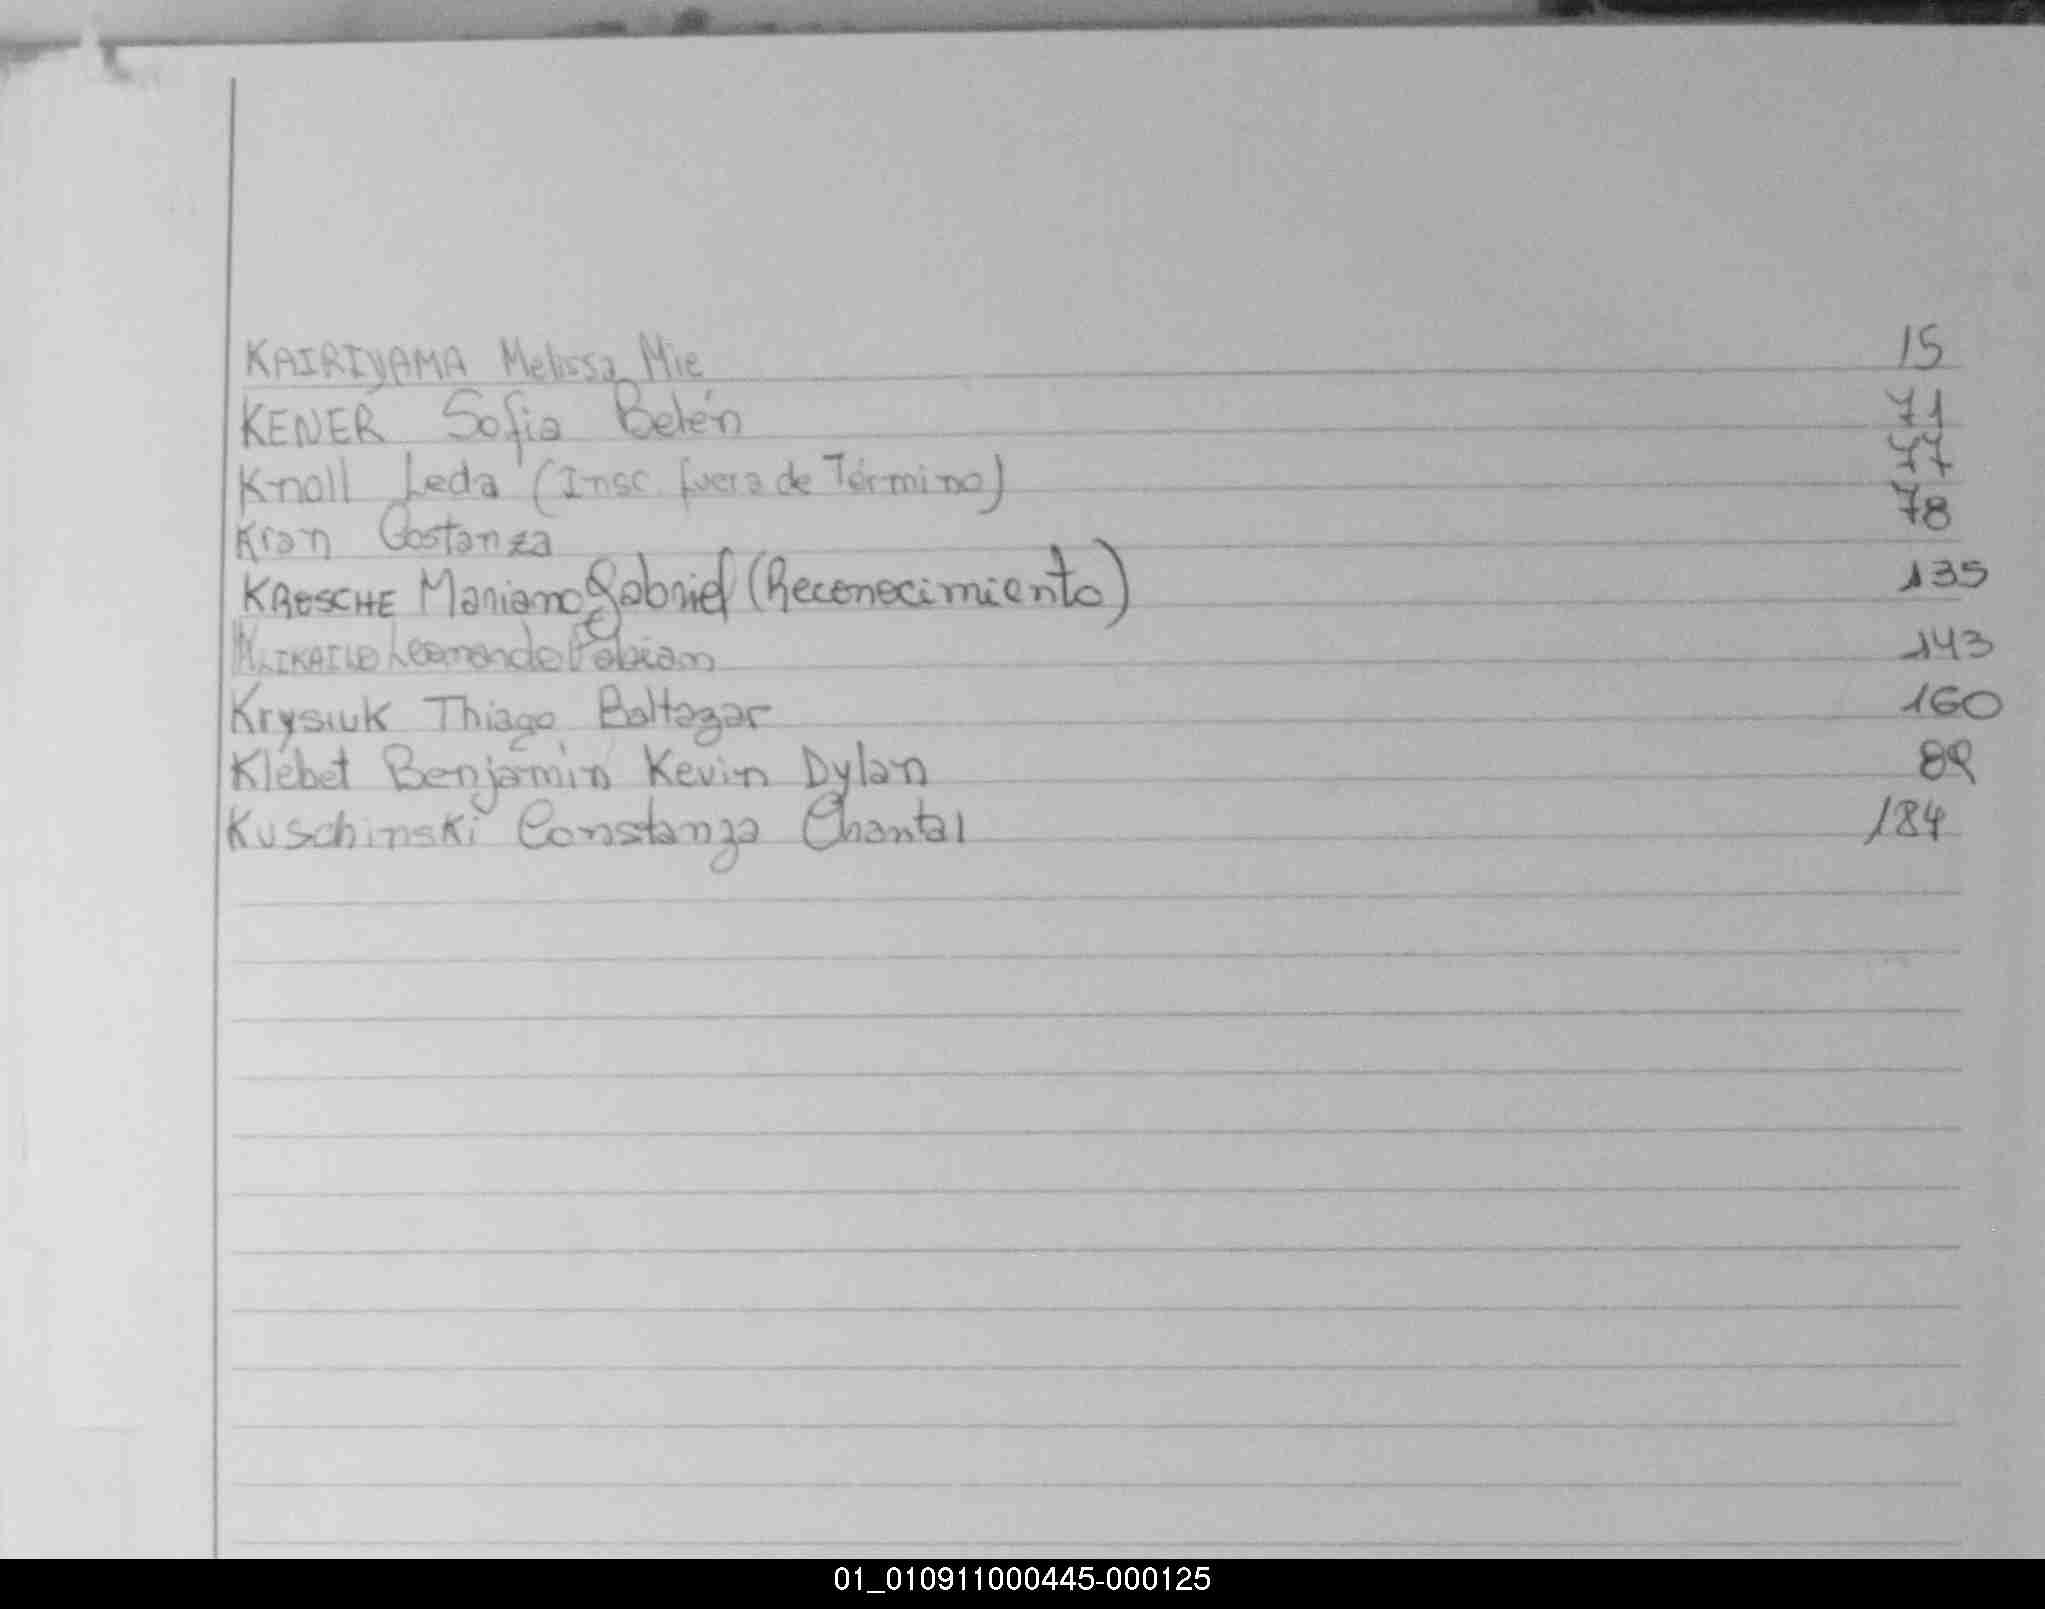 KAIRIYAMA Melissa Mie 15
KENER Sofia Belén 71
Knoll Leda (Insc. fuera de Término) 77
Kran Costanza 78
KROSCHE Mariano Gabriel (Reconocimiento) 135
Fabian 143
Krysiuk Thiago Baltazar 160
Klébet Benjamín Kevin Dylan 89
Kuschinski Constanza Chantal 184
01_010911000445-000125